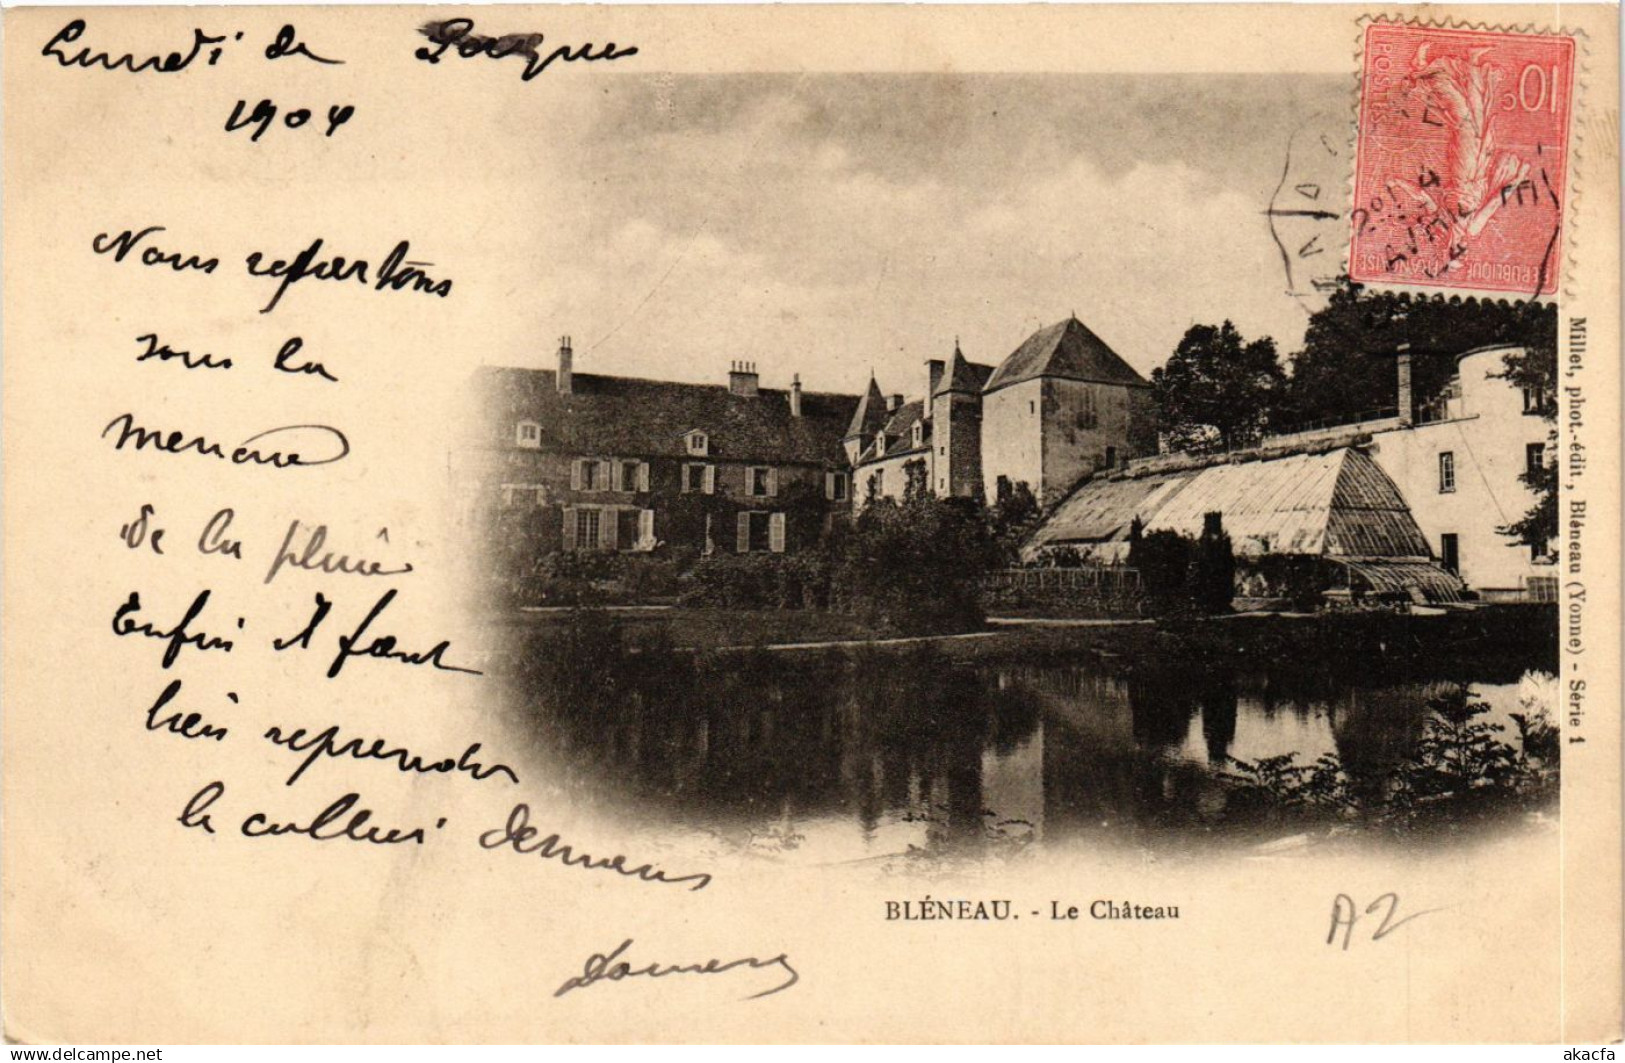 Lundi de Pâques
1904
Nous repartons
sous la
menace
de la pluie
Enfin il faut
bien reprendre
le collier demain
BLÉNEAU. - Le Château
A2
10c
POSTES
REPUBLIQUE FRANÇAISE
AVRIL
Millet, phot.-édit., Bléneau (Yonne) - Série 1
www.delcampe.net
akacfa